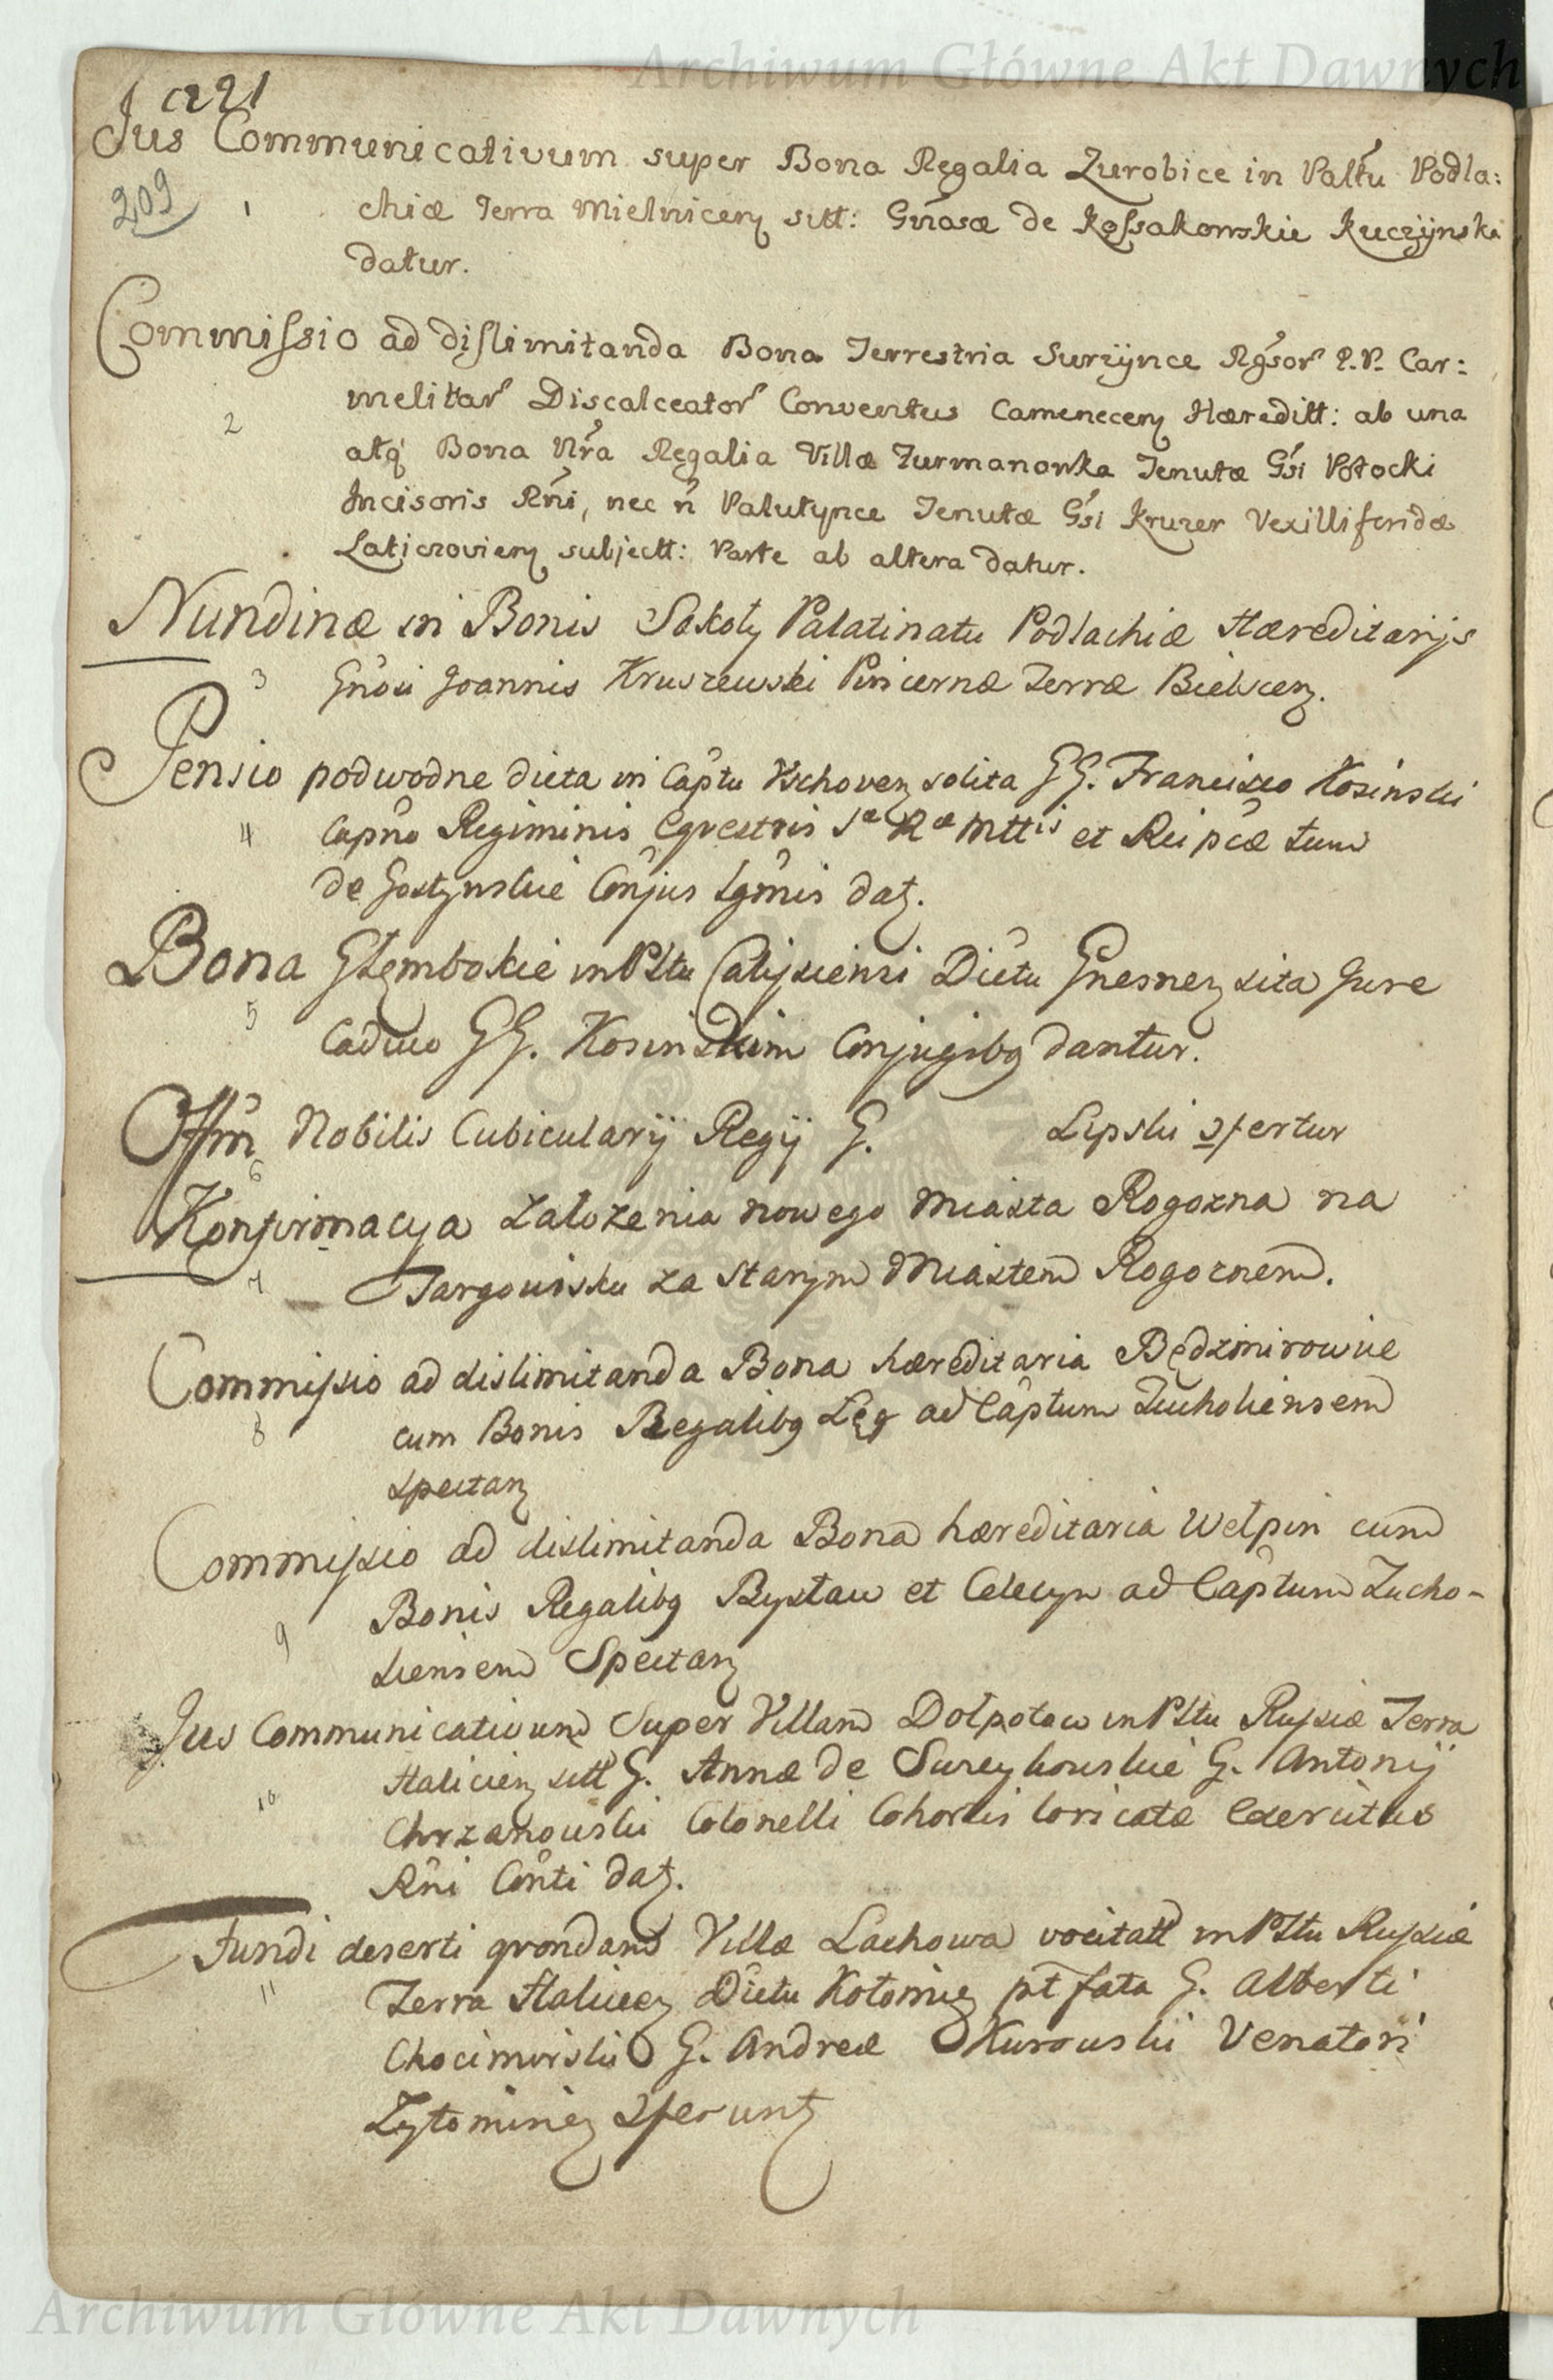 Archiwum Główne Akt Dawnych
221
Jus Communicativum super Bona Regalia Zurobice in Palt̃u Podla:
209
1 chiæ Terra Mielnicen̄ sitt: Gnõsæ de Kossakowskie Kuczÿnska
datur.
Commissio ad dislimitanda Bona Terrestria Surzÿnce Rg̃sor̃ P.P. Car:
melitar̃ Discalceator̃ Conventus Camenecen̄ Hæreditt: ab una
2
atq̃ Bona Nr̃a Regalia Villæ Zurmanowka Tenutæ Gs̃i Potocki
Incisoris Rñi, nec ñ Palutynce Tenutæ Gs̃i Kruzer Vexilliferidæ
Laticzovien̄ subjectt: Parte ab altera datur.
Nundinæ in Bonis Sokoły Palatinatu Podlachiæ Hæreditarijs
3 Gnõsi Joannis Kruszewski Pincernæ Terræ Bielscen̄.
Pensio podwodne dicta in Cap̃tu Vschoven̄ solita GG. Francisco Kosinski
4 Capño Regiminis Equestris Sæ Ræ Mttis et Reipc̃æ tum
de Gostynskie Cõnjus Lg̃mis dat̄.
Bona Głęmbokie in Pltu Calissiensi Dic̃tu Gnesnen̄ sita Jure
5
Caduco GG. Kosinskim Conjugibꝫ dantur.
Offm̃ Nobilis Cubicularÿ Regÿ G. Lipski ɔfertur
6
Konfirmacya załozenia nowego Miasta Rogozna na
7 Targowisku za starym Miastem Rogoznem.
Commissio ad dislimitanda Bona hæreditaria Będzmirowice
8 cum Bonis Regalibꝫ Łęg ad Cap̃tum Tucholiensem
spectan̄
Commissio ad dislimitanda Bona hæreditaria Wełpin cum
Bonis Regalibꝫ Bysław et Celecyn ad Cap̃tum Tucho-
9
liensem Spectan̄
Jus Communicativum Super Villam Dołpotow in Pltu Russiæ Terra
Halicien̄ sitt G. Annæ de G. Antonÿ
10
Chrzanowski Colonelli Cohortis loricatæ Exercitus
Rñi Cõnti dat̄.
Fundi deserti Villæ Lachowa vocitatt in Pltu Russiæ
11 Terra Halicen̄ Dic̃tu Kołomien̄ pt fata G. Alberti
Chocimirski G. Andreæ Kurowski Venatori
Zytomirien̄ ɔferunt̄
Archiwum Główne Akt Dawnych